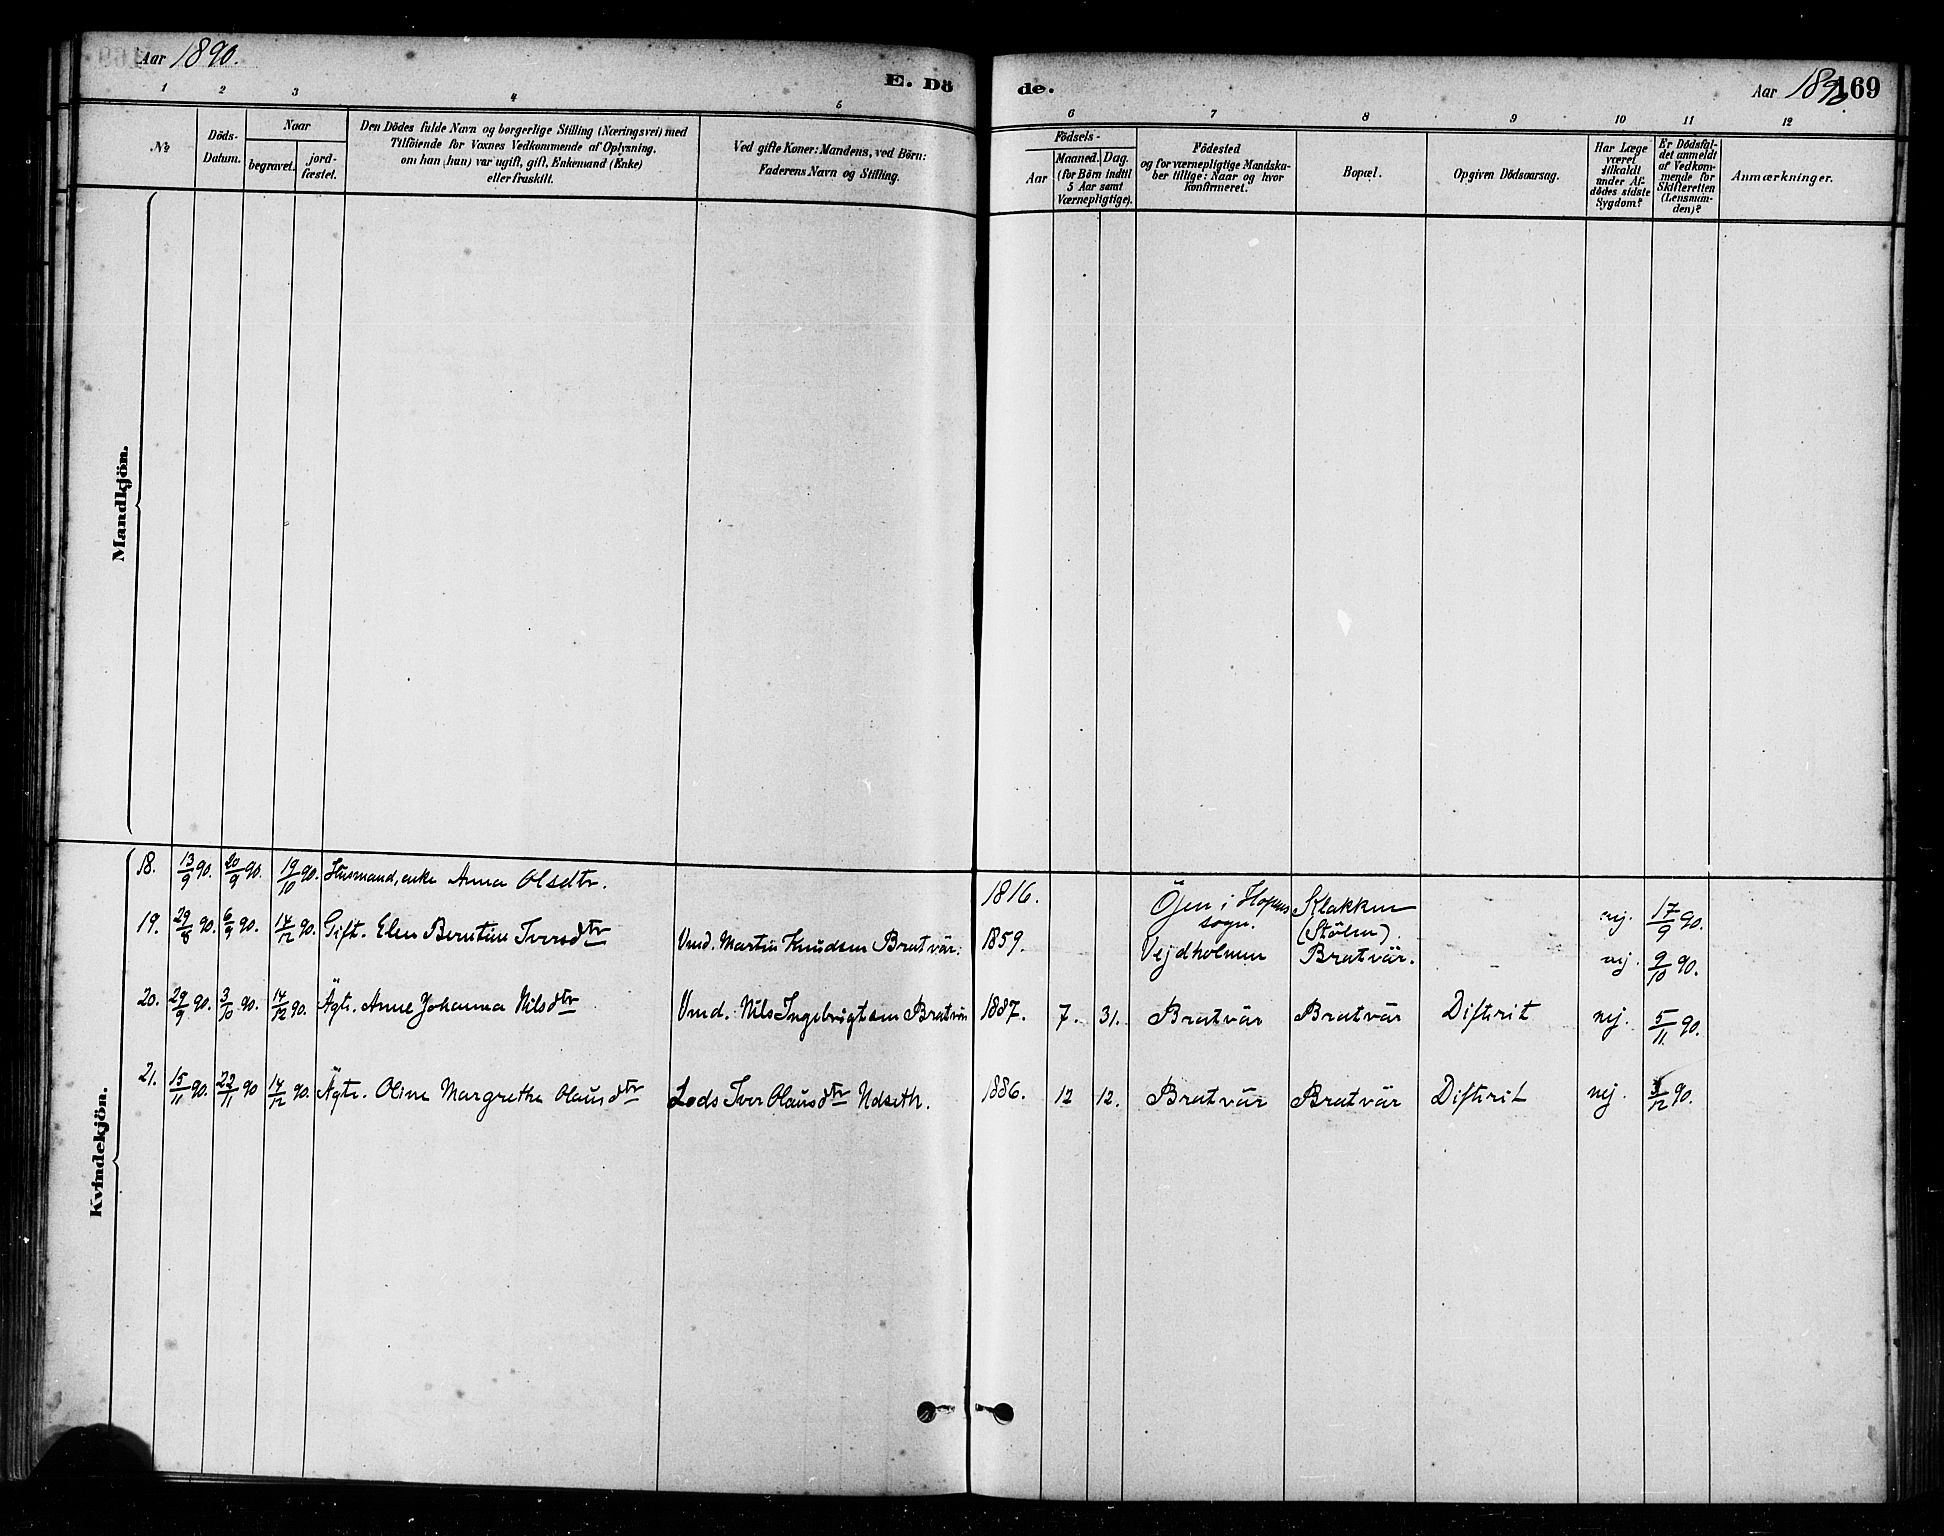 Aar 1890.
E. Dö
de.
Aar 1890 169
1 2 3 4 5
6 7 8 9 10 11 12
No
Döds-
Datum.
Naar
begravet.
jord-
fæstet.
Den Dödes fulde Navn og borgerlige Stilling (Næringsvei) med
Tilföiende for Voxnes Vedkommende af Oplysning,
om han (hun) var ugift, gift, Enkemand (Enke)
eller fraskilt.
Ved gifte Koner: Mandens, ved Börn:
Faderens Navn og Stilling.
Födsels-
Aar
Maaned. Dag.
(for Börn indtil
5 Aar samt
Værnepligtige).
Födested
og for værnepligtige Mandska-
ber tillige: Naar og hvor
konfirmeret.
Bopæl.
Opgiven Dödsaarsag.
Har Læge
været
tilkaldt
under Af-
dödes sidste
Sygdom?
Er Dödsfal-
det anmeldt
af Vedkom-
mende for
Skifteretten
(Lensman-
den)?
Anmærkninger.
Mandkjön.
Kvindekjön.
18. 13/9 90. 20/9 90. 19/10 90. Husmand, enke Anna Olsdtr. 1816. Öjen i Hopens sogn. Klakken (Stölen). nej. 17/9 90.
19. 29/8 90. 6/9 90. 14/12 90. Gift. Elen Berntine Iversdtr Vmd. Martin Knudsen Bratvär. 1859. Vejdholmen Bratvär. - nej. 9/10 90.
20. 29/9 90. 3/10 90. 14/12 90. Ägte. Anne Johanna Nilsdtr Vmd. Nils Ingebrigtsen Bratvär 1887. 7. 31. Bratvär Bratvär Difterit nej. 5/11 90.
21. 15/11 90. 22/11 90 14/12 90. Ägte. Oline Margrethe Olausdtr Lods Iver Olausdtr Udseth. 1886. 12 12. Bratvär Bratvär Difterit nej. 3/12 90.